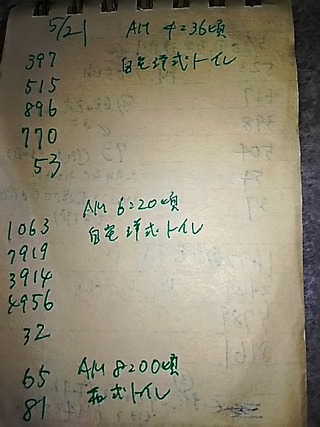 5/21 AM 4:36頃
397 自宅洋式トイレ
515
896
770
53
AM 6:20頃
1063 自宅洋式トイレ
7919
3914
4956
32
65 AM 8:00頃
81 和式トイレ